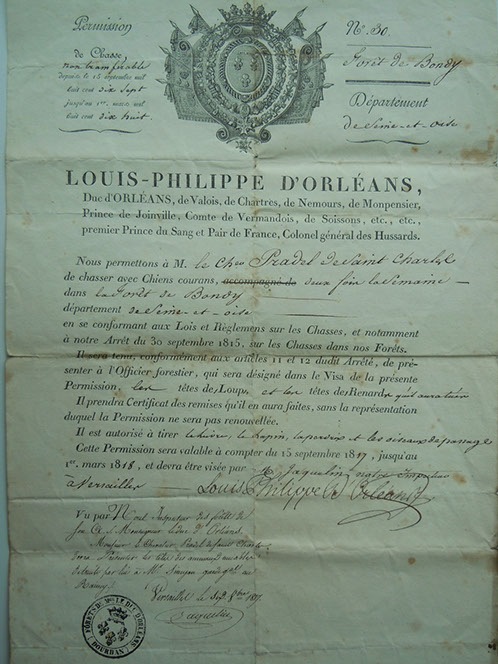 Permission
de Chasse,
non transférable
depuis le 15 septembre mil
huit cent dix sept
jusqu'au 1er. mars mil
huit cent dix huit.
N.º 30.
Forêt de Bondy
Département
de Seine-et-oise
LOUIS-PHILIPPE D'ORLÉANS,
Duc d'ORLÉANS, de Valois, de Chartres, de Nemours, de Monpensier,
Prince de Joinville, Comte de Vermandois, de Soissons, etc., etc.,
premier Prince du Sang et Pair de France, Colonel général des Hussards.
Nous permettons à M. le Cher Pradel de Saint Charles
de chasser avec Chiens courans, accompagné de deux fois la Semaine
dans la Forêt de Bondy
département de Seine-et-oise
en se conformant aux Lois et Règlemens sur les Chasses, et notamment
à notre Arrêt du 30 septembre 1815, sur les Chasses dans nos Forêts.
Il sera tenu, conformément aux articles 11 et 12 dudit Arrêté, de pré-
senter à l'Officier forestier, qui sera désigné dans le Visa de la présente
Permission, les têtes de Loups et les têtes de Renards qu'il aura tués
Il prendra Certificat des remises qu'il en aura faites, sans la représentation
duquel la Permission ne sera pas renouvellée.
Il est autorisé à tirer le lièvre, le lapin, la perdrix et les oiseaux de passage
Cette Permission sera valable à compter du 15 septembre 1817, jusqu'au
1er. mars 1818, et devra être visée par M. Jaquelin notre Inspecteur
à Versailles
Louis Philippe d'Orléans
Vu par Nous Inspecteur des forêts de
Son A. S. Monseigneur le Duc d'Orléans
Monsieur le Chevalier Pradel de Saint Charles
devra présenter les têtes des animaux nuisibles
détruits par lui à Mr.
Versailles le 1817.
Jaquelin
FORÊTS DE Mgr LE DUC D'ORLÉANS
DOURDAN